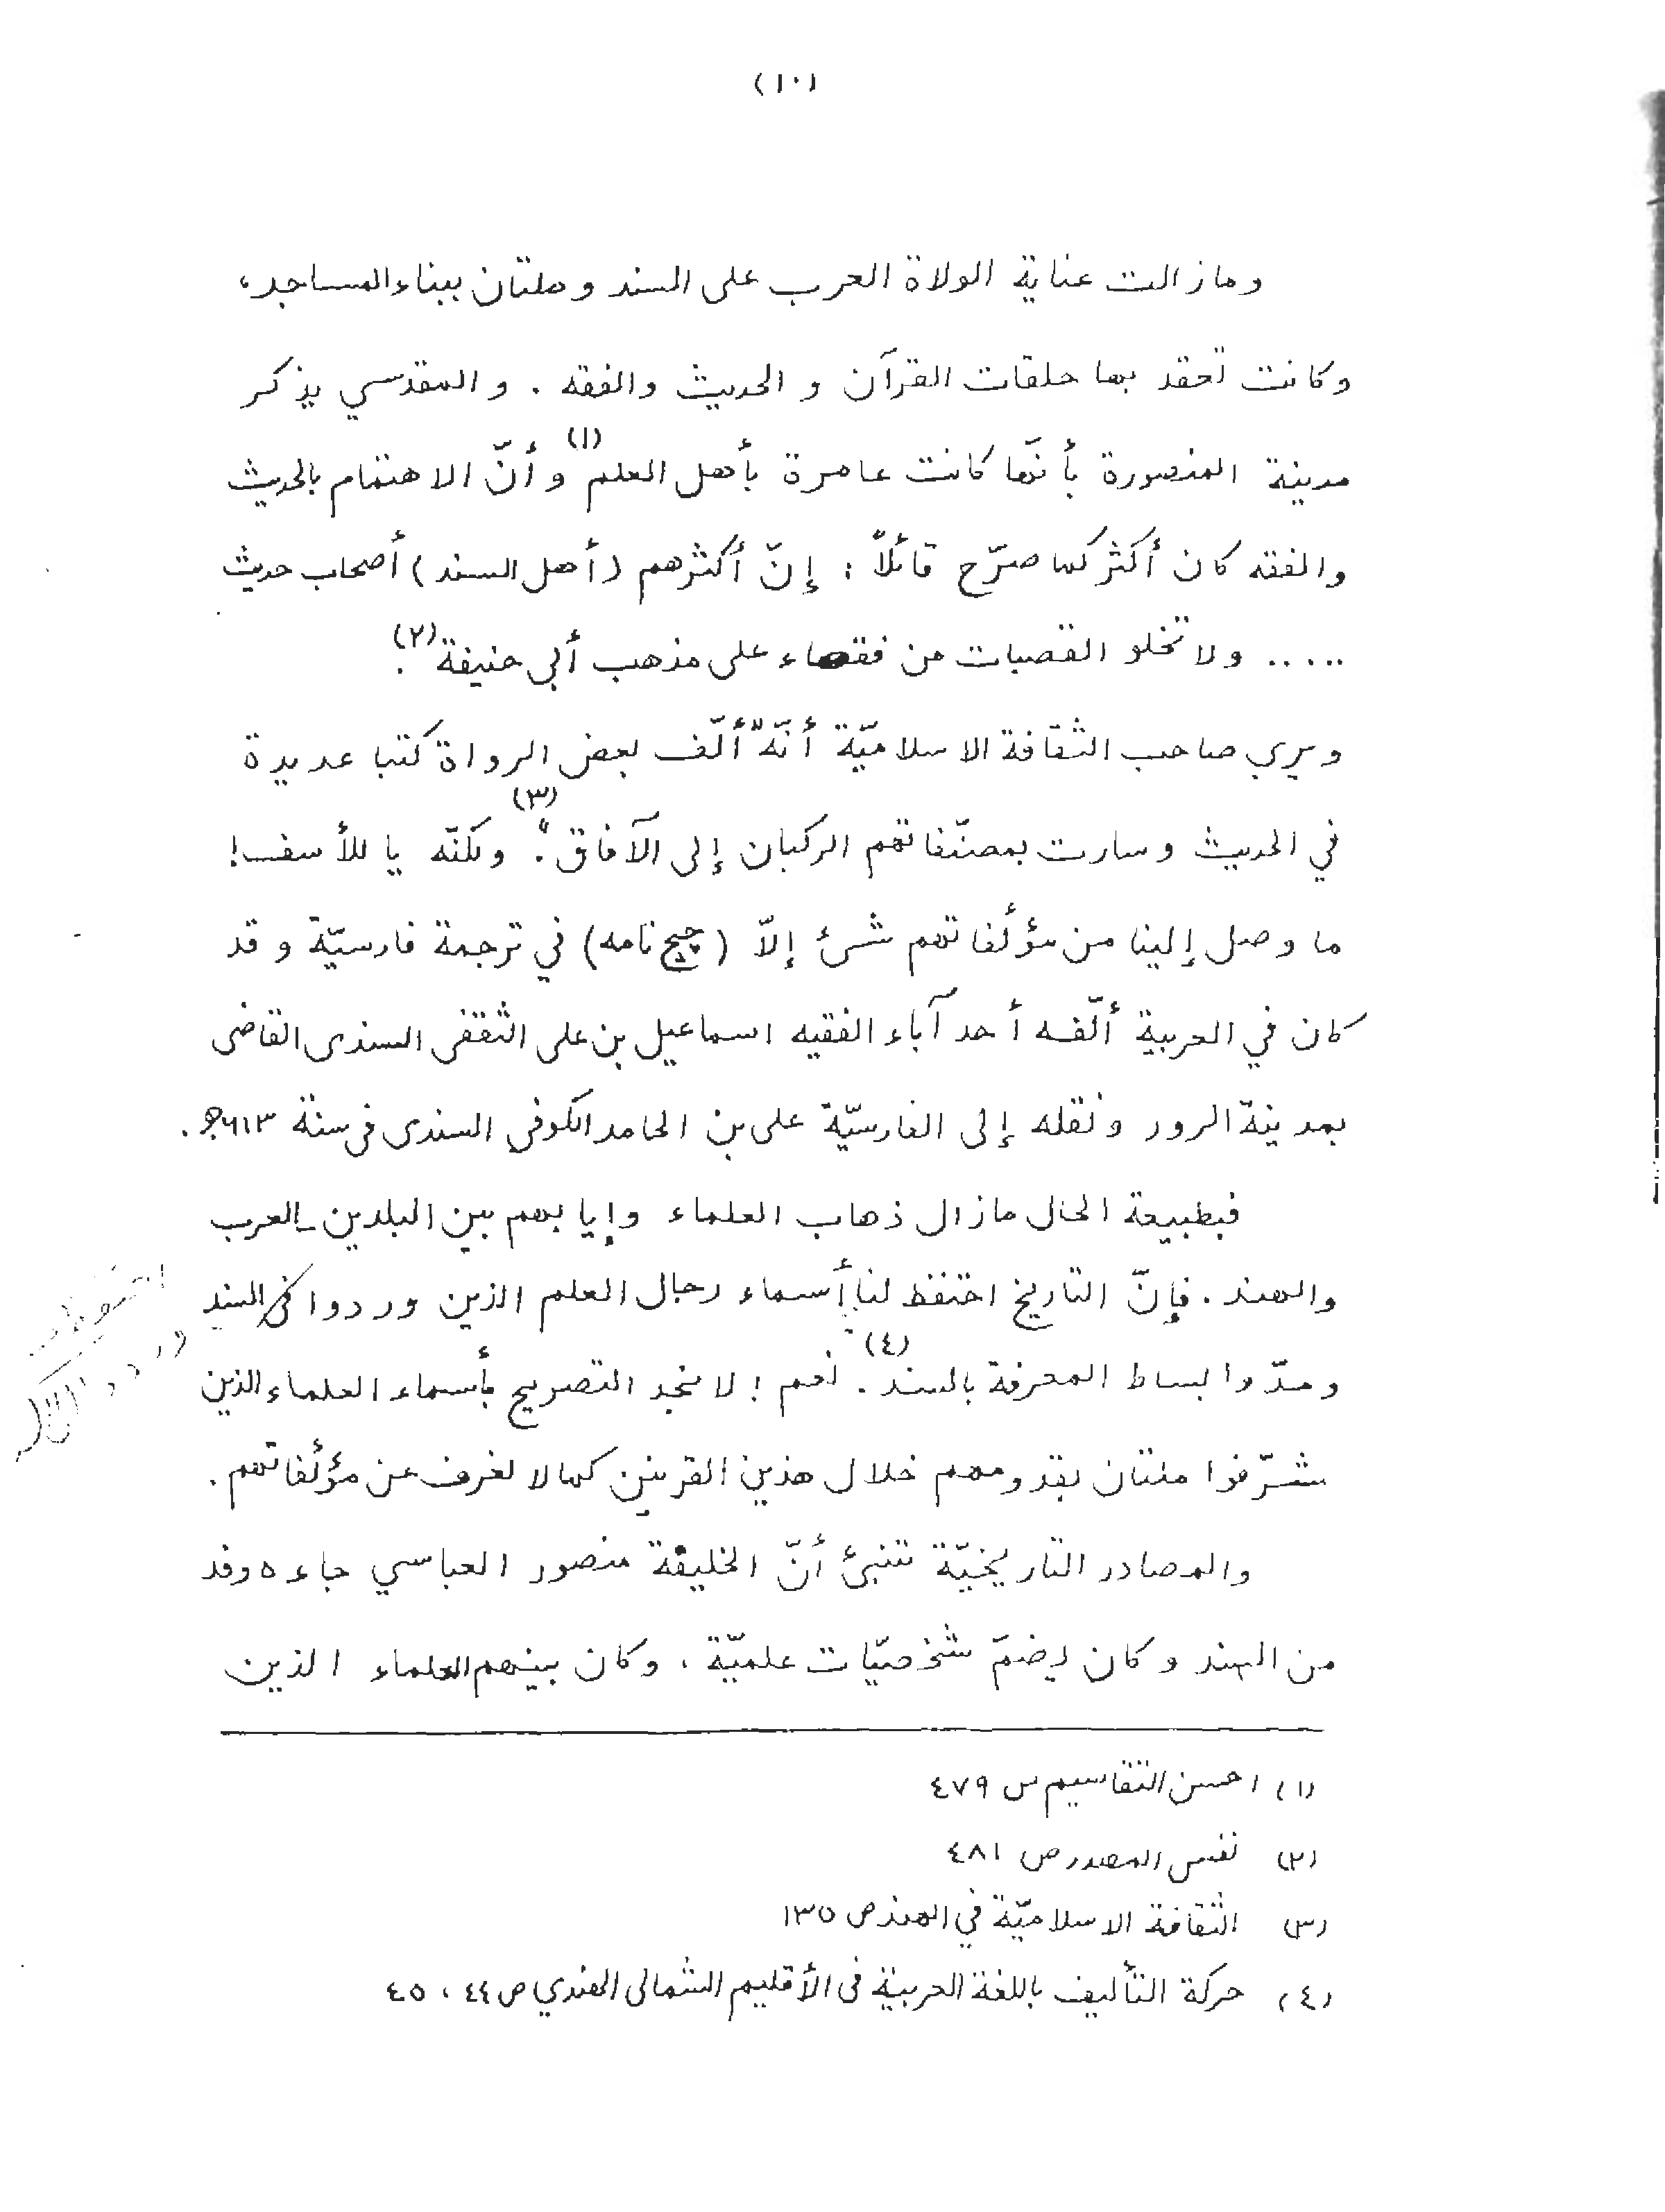 (١٠)
وما زالت عناية الولاة العرب على السند وملتان ببناء المساجد،
وكانت تعقد بها حلقات القرآن و الحديث والفقه . والمقدسي يذكر
مدينة المنصورة بأنّها كانت عامرة بأهل العلم (١) وأنّ الاهتمام بالحديث
والفقه كان أكثر كما صرّح قائلاً : إنّ أكثرهم (أهل السند) أصحاب حديث
..... ولا تخلو القصبات من فقهاء على مذهب أبي حنيفة (٢) .
ويري صاحب الثقافة الاسلاميّة أنّه "ألّف بعض الرواة كتبا عديدة
في الحديث وسارت بمصنّفاتهم الركبان إلى الآفاق" (٣) . ولكنّه يا للأسف !
ما وصل إلينا من مؤلّفاتهم شئ إلاّ (چچ نامه) في ترجمة فارسيّة وقد
كان في العربية ألّفه أحد آباء الفقيه اسماعيل بن على الثقفى السندى القاضى
بمدينة الرور ونقله إلى الفارسيّة على بن الحامد الكوفي السندى فى سنة ٦١٣ھ .
فبطبيعة الحال مازال ذهاب العلماء وإيابهم بين البلدين ـ العرب
والهند . فإنّ التاريخ احتفظ لنا أسماء رجال العلم الذين وردوا فى السند
ومدّوا بساط المعرفة بالسند (٤) . نعم ! لا نجد التصريح بأسماء العلماء الذين
شرّفوا ملتان بقدومهم خلال هذين القرنين كما لا نعرف عن مؤلّفاتهم .
والمصادر التاريخيّة تنبئ أنّ الخليفة منصور العباسي جاءه وفد
من الهند وكان يضمّ شخصيّات علميّة ، وكان بينهم العلماء الذين
(١) احسن التقاسيم ص ٤٧٩
(٢) نفس المصدر ص ٤٨١
(٣) الثقافة الاسلاميّة في الهند ص ١٣٥
(٤) حركة التأليف باللغة العربية فى الأقليم الشمالى الهندي ص ٤٤ ، ٤٥